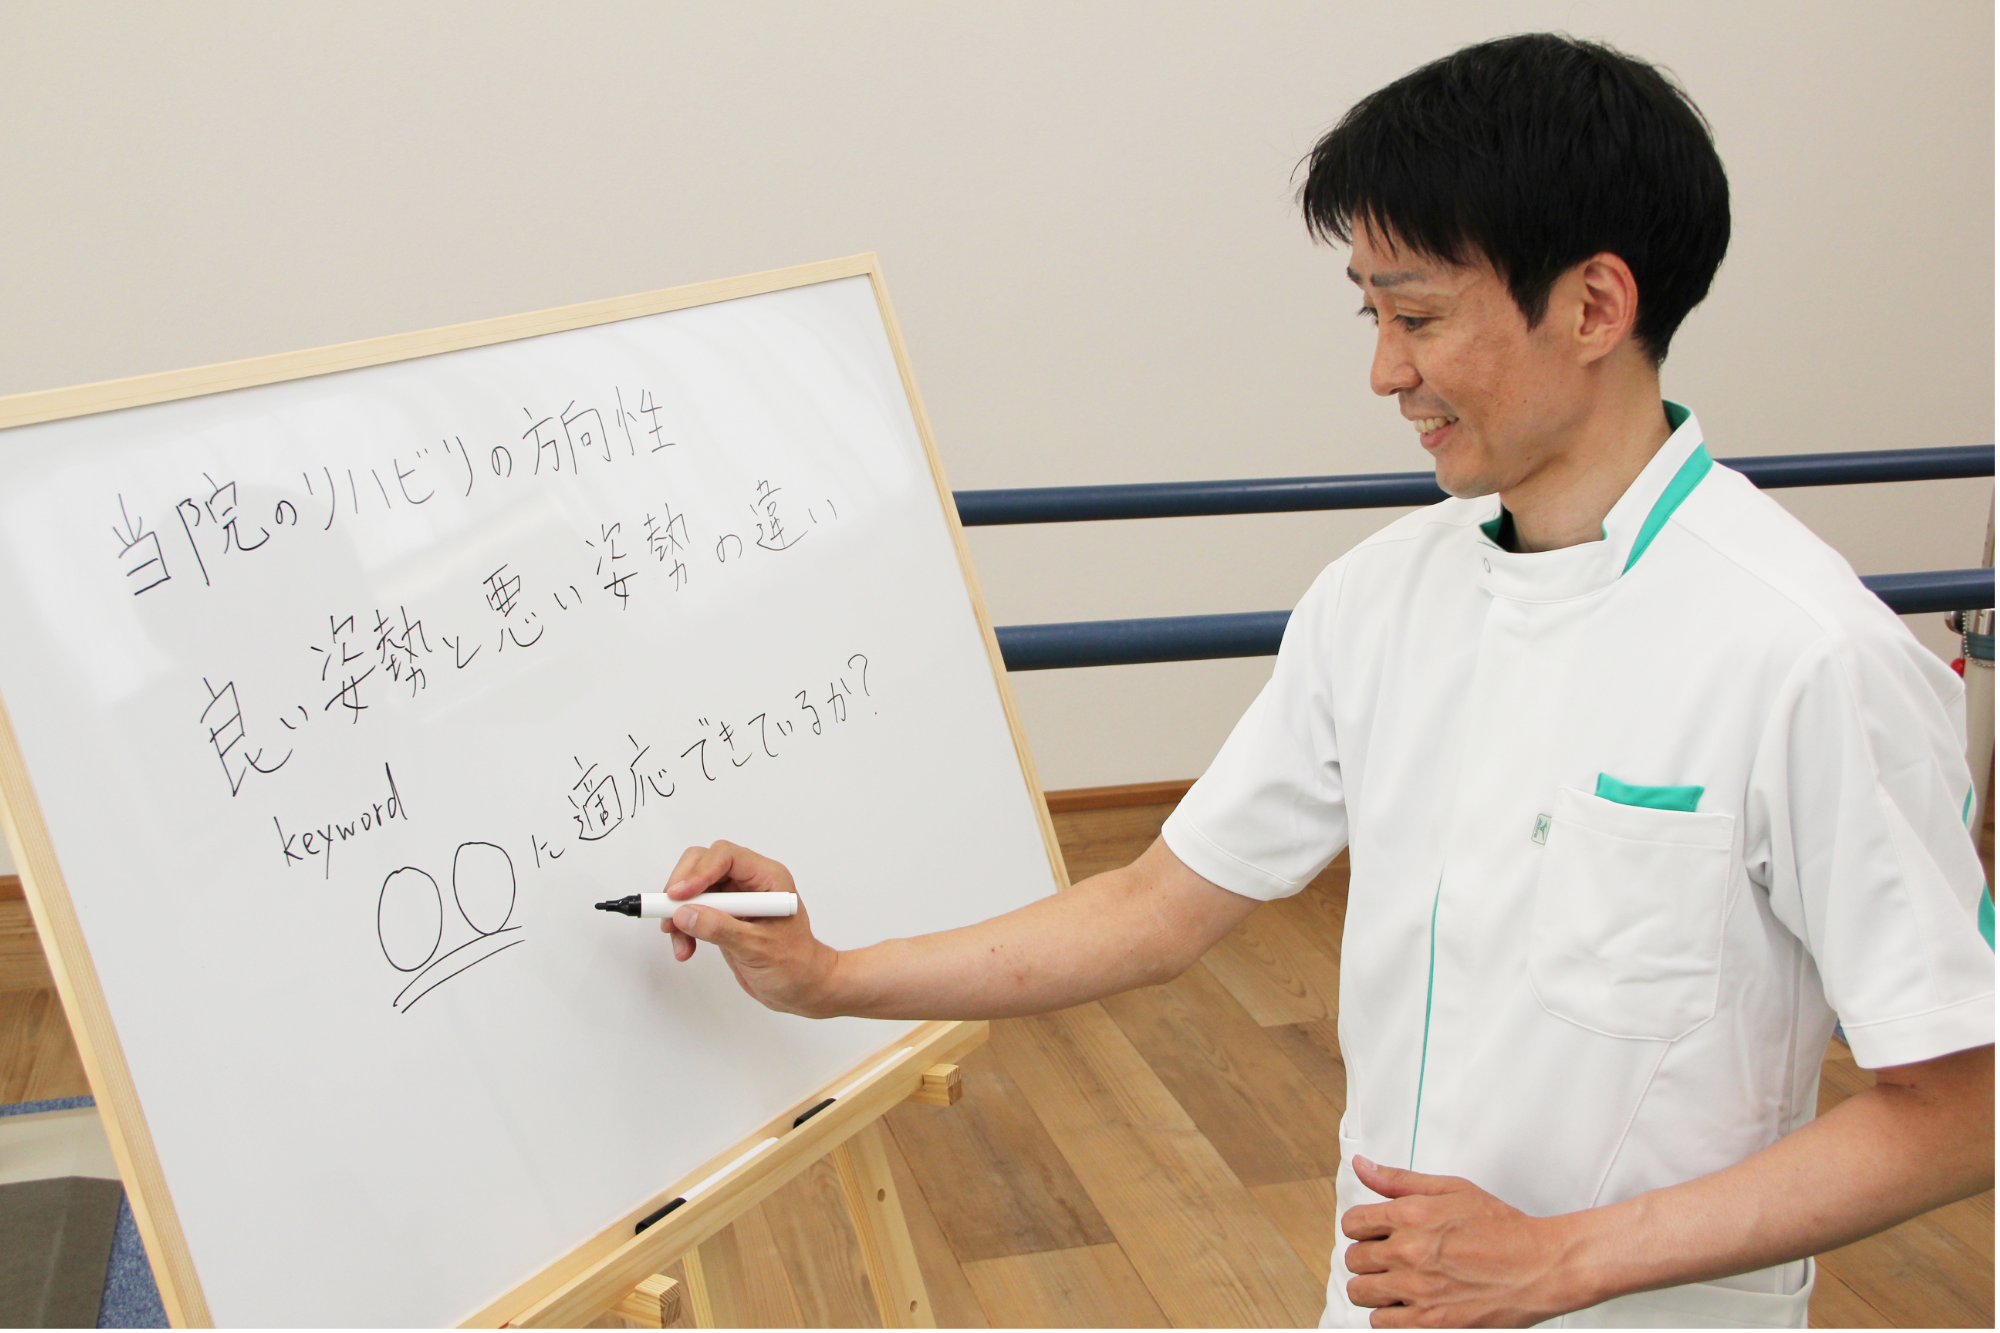 当院のリハビリの方向性
良い姿勢と悪い姿勢の違い
keyword
○○に適応できているか?